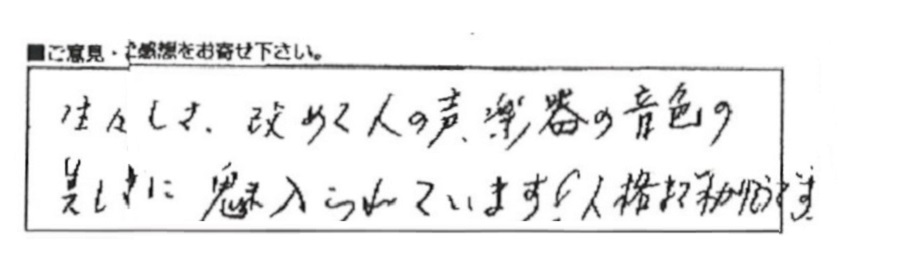 ■ご意見・ご感想をお寄せ下さい。
生々しさ、改めて人の声、楽器の音色の
美しさに魅入られています。人格までわかりそうです